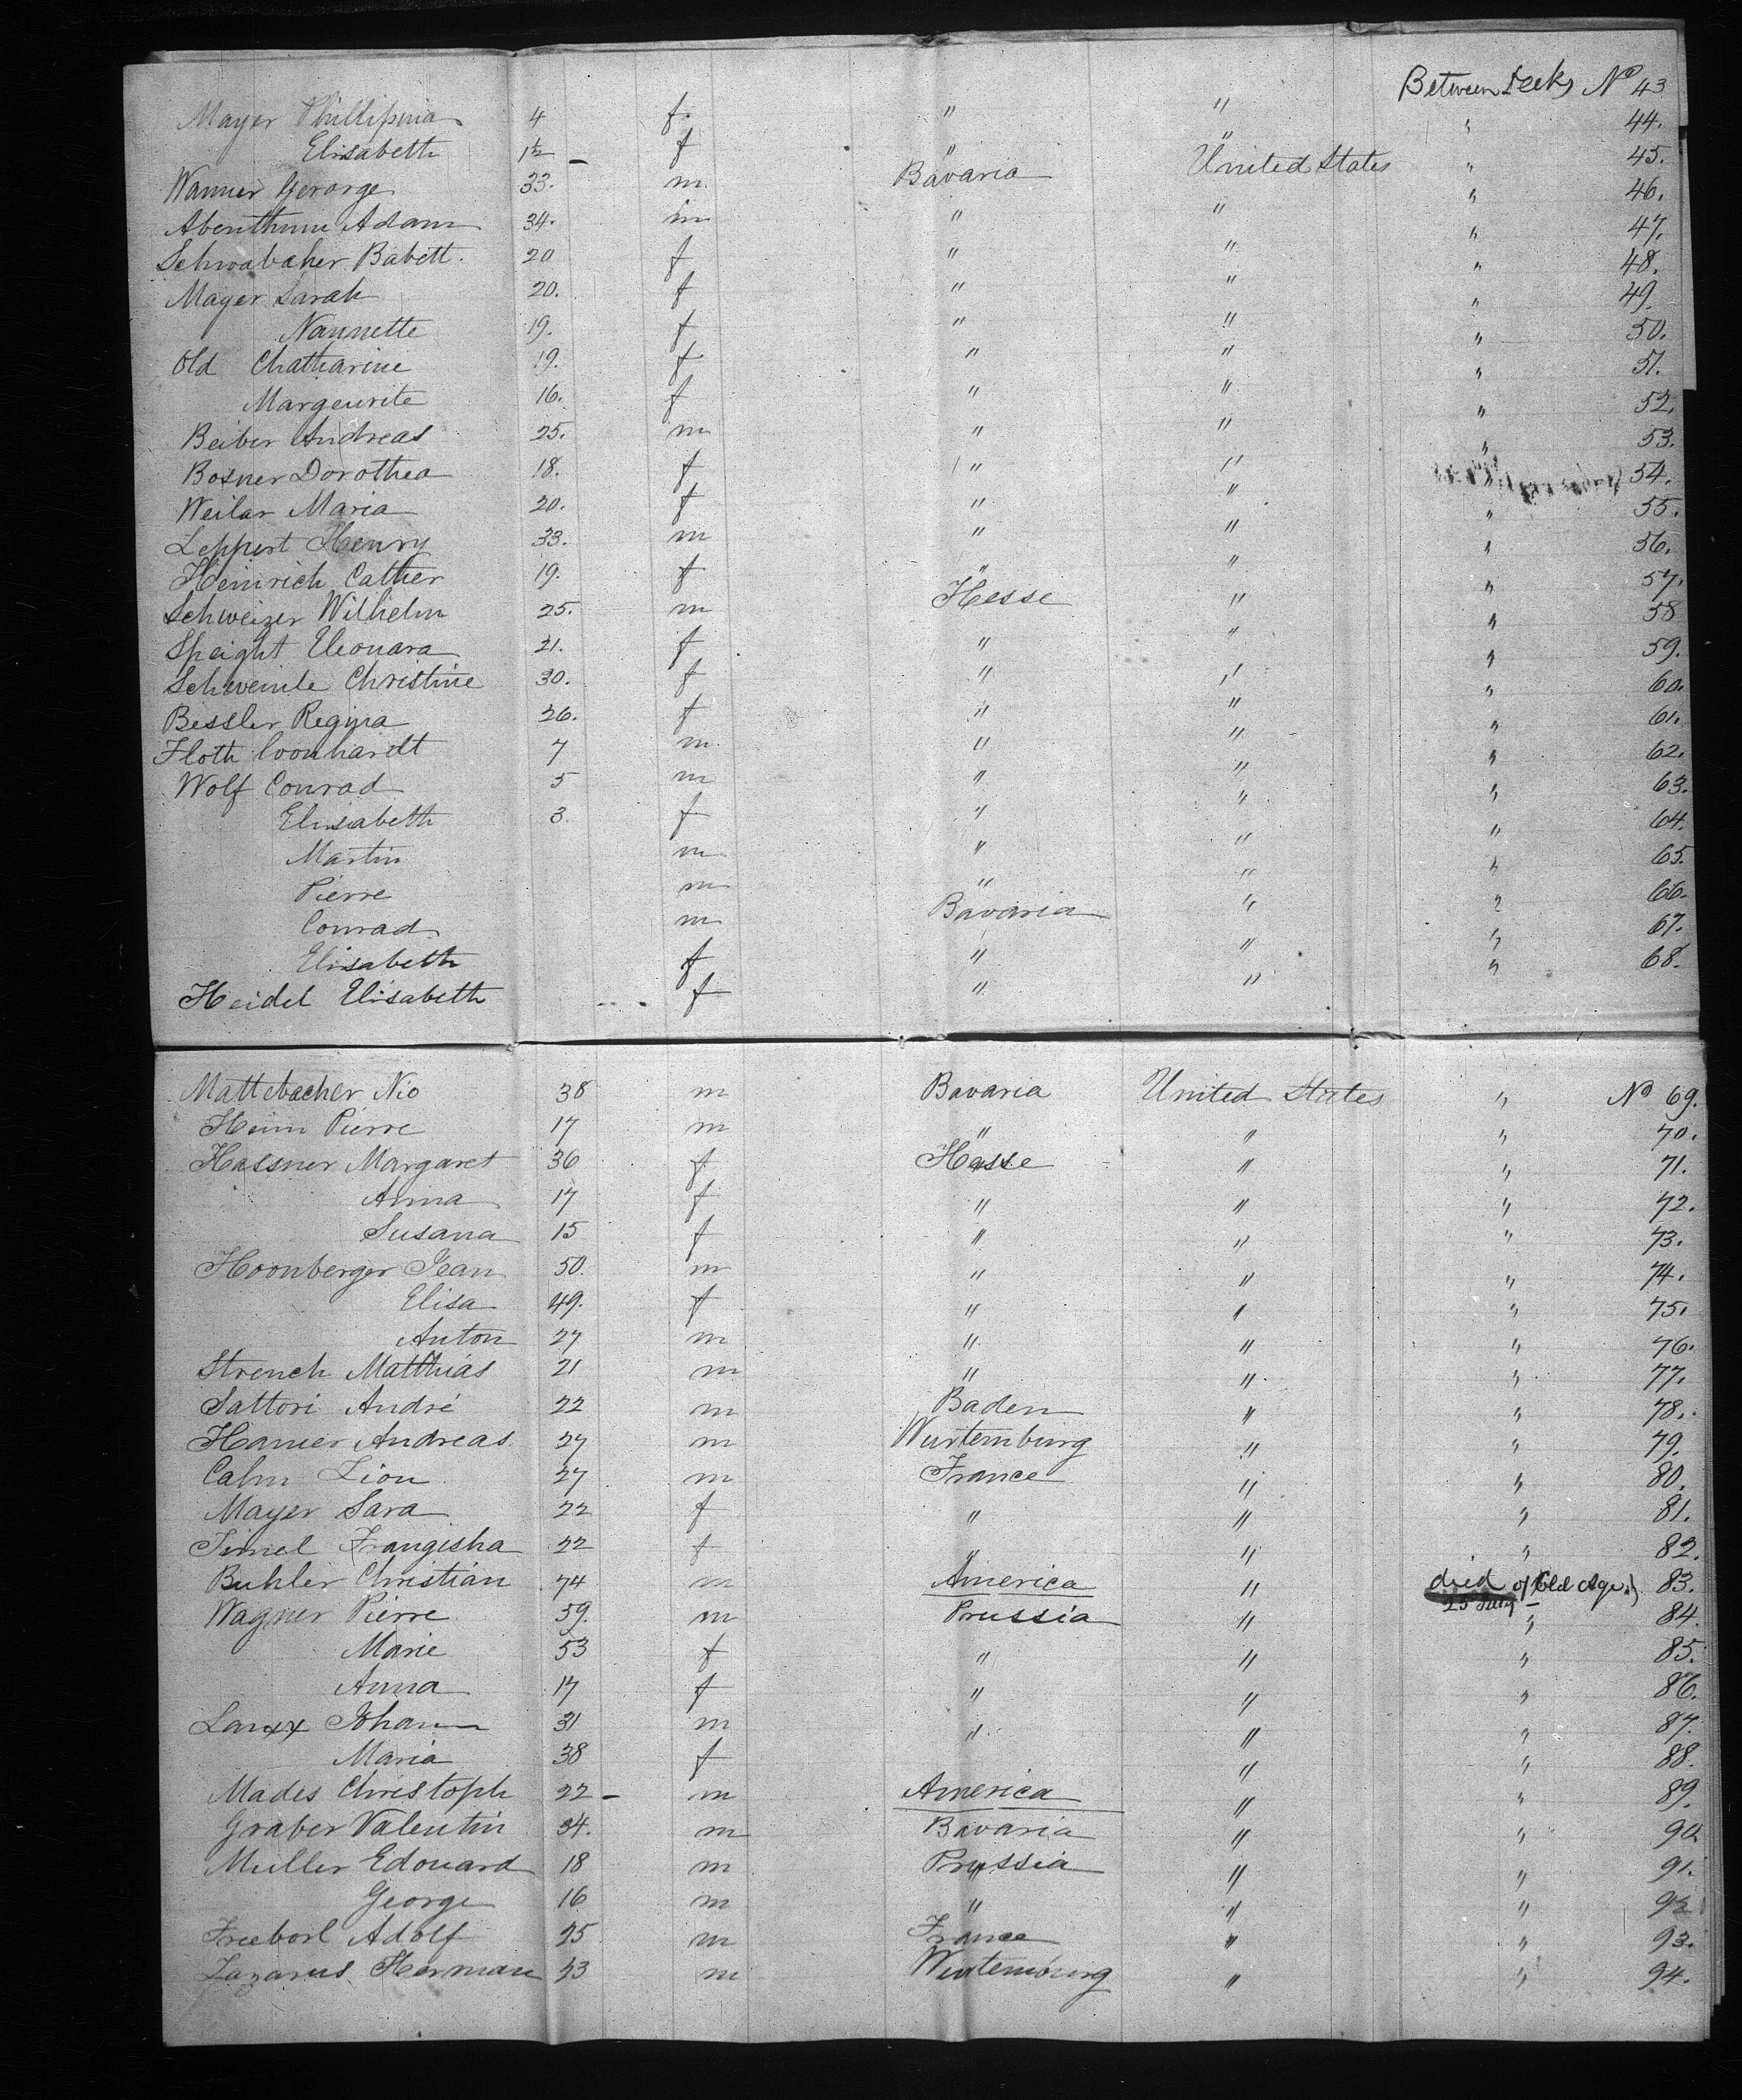 Mayer Phillipina 4 f. " " Between Decks No 43
Elisabeth 1½ f " " " 44.
Wanner Gerorge 33. m. Bavaria United States " 45.
Abenthum Adam 34. m " " " 46.
Schwabaher Babett. 20 f " " " 47.
Mayer Sarah 20. f " " " 48.
Nannette 19. f " " " 49.
Old Chatharine 19. f " " " 50.
Margeurite 16. f " " " 51.
Beiber Andreas 25. m " " " 52.
Bosner Dorothea 18. f " " " 53.
Weilar Maria 20. f " " " 54.
Leppert Henry 33. m " " " 55.
Heinrich Cather 19. f " " " 56.
Schweizer Wilhelm 25. m Hesse " " 57.
Speight Eleonara 21. f " " " 58
Schweinle Christine 30. f " " " 59.
Bessler Regina 26. f " " " 60.
Floth Coonhardt 7 m. " " " 61.
Wolf Conrad 5 m " " " 62.
Elisabeth 3. f " " " 63.
Martin m " " " 64.
Pierre m " " " 65.
Conrad m Bavaria " " 66.
Elisabeth f " " " 67.
Heidel Elisabeth f " " " 68.
Mattebacher Nio 38 m Bavaria United States " No 69.
Heim Pierre 17 m " " " 70.
Hassner Margaret 36 f Hesse " " 71.
Anna 17 f " " " 72.
Susana 15 f " " " 73.
Hoonberger Jean 50. m " " " 74.
Elisa 49. f " " " 75.
Anton 27 m " " " 76.
Strench Matthias 21 m " " " 77.
Sattori André 22 m Baden " " 78.
Hamer Andreas 27 m Wurtemburg " " 79.
Calm Lion 27 m France " " 80.
Mayer Sara 22 f " " " 81.
Simel Frangisha 22 f " " " 82.
Buhler Christian 74 m America " died of Old Age. 83.
25 July
Wagner Pierre 59. m Prussia " " 84.
Marie 53 f " " " 85.
Anna 17 f " " " 86.
Lauxx Johann 31 m " " " 87.
Maria 38 f " " " 88.
Mades Christoph 22 m America " " 89.
Graber Valentin 34. m Bavaria " " 90
Muller Edouard 18 m Prussia " " 91.
George 16 m " " " 92
Freeborl Adolf 25 m France " " 93.
Lazarus Herman 23 m Wurtemburg " " 94.